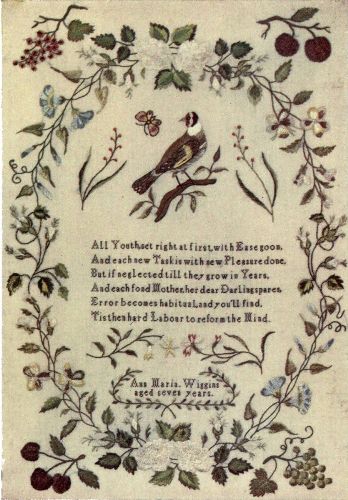 All Youth set right at first, with Ease go on,
And each new Task is with new Pleasure done,
But if neglected till they grow in Years,
And each fond Mother, her dear Darling spares,
Error becomes habitual, and you'll find,
Tis then hard Labour to reform the Mind.
Ann Maria. Wiggins
aged seven years.